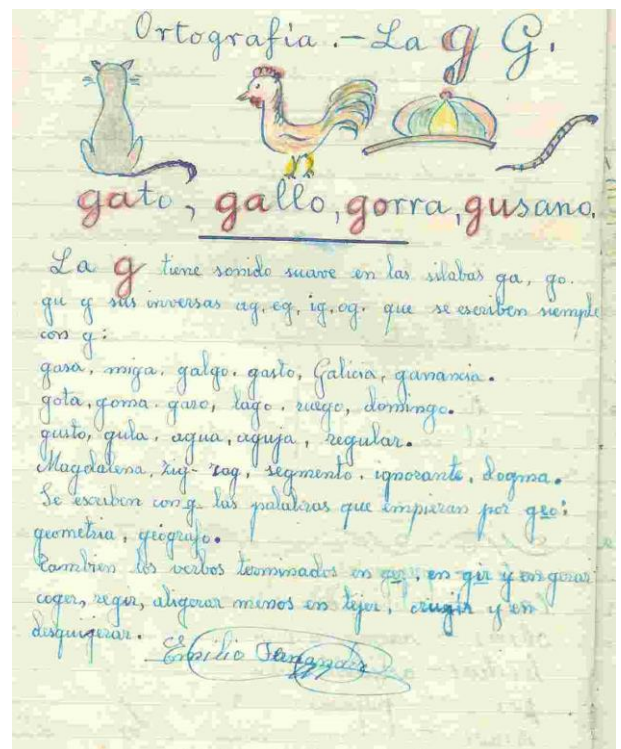 Ortografía.-La g G.
gato, gallo, gorra, gusano.
La g tiene sonido suave en las silabas ga, go.
gu y sus inversas ag, eg, ig, og. que se escriben siemple
con g:
gasa, miga, galgo, gasto, Galicia, ganancia.
gota, goma. gaso, lago. ruego, domingo.
gusto, gula. agua, aguja, regular.
Magdalena, zig-zag, segmento, ignorante, dogma.
Se escriben con g las palabras que empiezan por geo:
geometria, geógrafo.
tambien los verbos terminados en ger, en gir y en gerar
coger, reger, aligerar menos en tejer, crugir y en
desquigerar.
Emilio